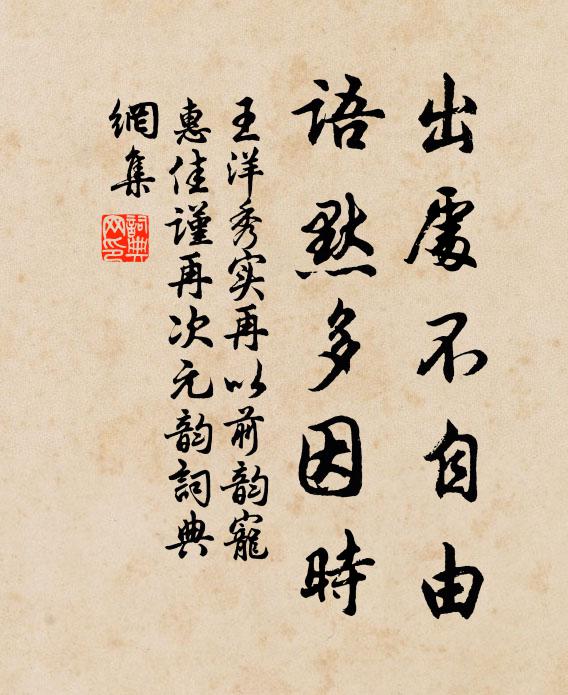 出處不自由
語默多因時
王洋秀实再以前韵寵
惠佳謹再次元韵詞典
網集
詞典
网印